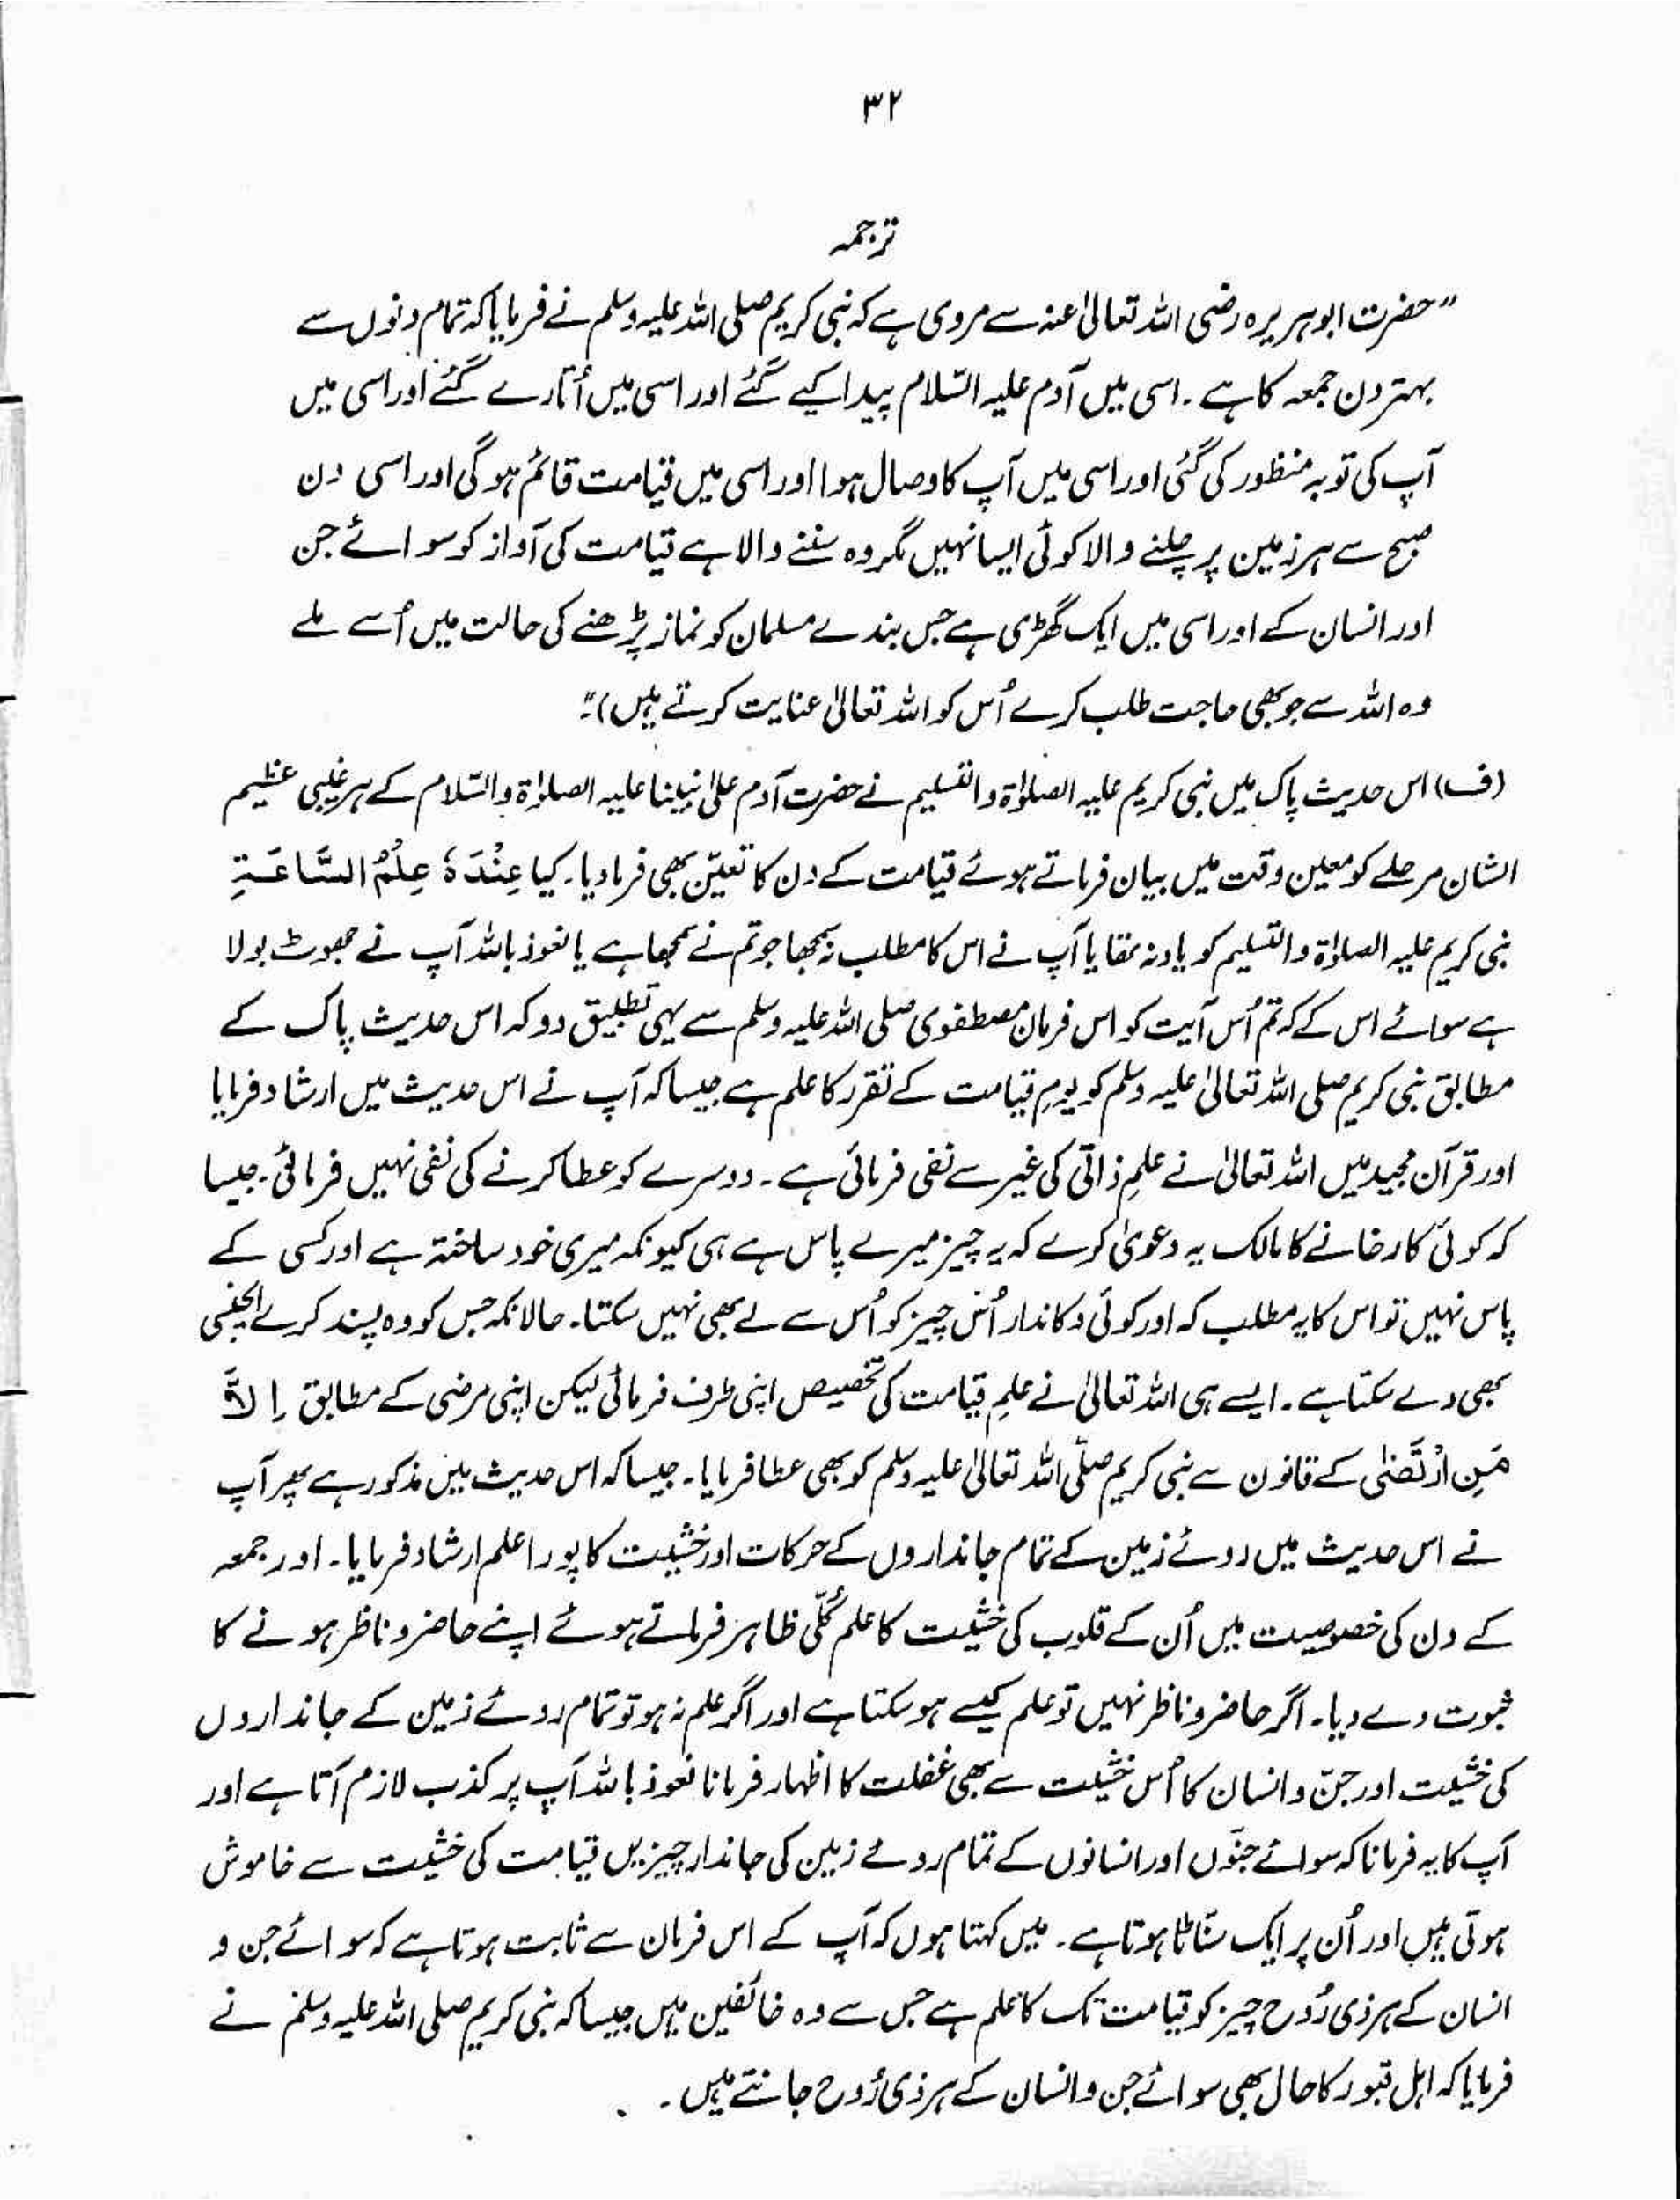 ۳۲
ترجمہ
”حضرت ابوہریرہ رضی اللہ تعالیٰ عنہ سے مروی ہے کہ نبی کریم صلی اللہ علیہ وسلم نے فرمایا کہ تمام دنوں سے
بہتر دن جمعہ کا ہے ۔ اسی میں آدم علیہ السّلام پیدا کیے گئے اور اسی میں اُتارے گئے اور اسی میں
آپ کی توبہ منظور کی گئی اور اسی میں آپ کا وصال ہوا اور اسی میں قیامت قائم ہو گی اور اسی دن
صبح سے ہر زمین پر چلنے والا کوئی ایسا نہیں مگر وہ سننے والا ہے قیامت کی آواز کو سوائے جن
اور انسان کے اور اسی میں ایک گھڑی ہے جس بندے مسلمان کو نماز پڑھنے کی حالت میں اُسے ملے
وہ اللہ سے جو بھی حاجت طلب کرے اُس کو اللہ تعالیٰ عنایت کرتے ہیں)“۔
(ف) اس حدیث پاک میں نبی کریم علیہ الصلوٰۃ والتسلیم نے حضرت آدم علیٰ نبینا علیہ الصلوٰۃ والسّلام کے ہر غیبی عظیم
الشان مرحلے کو معین وقت میں بیان فرماتے ہوئے قیامت کے دن کا تعیّن بھی فرما دیا۔ کیا عِنْدَہٗ عِلْمُ السَّاعَۃِ
نبی کریم علیہ الصلوٰۃ والتسلیم کو یاد نہ تھا یا آپ نے اس کا مطلب نہ سمجھا جو تم نے سمجھا ہے یا نعوذ باللہ آپ نے جھوٹ بولا
ہے سوائے اس کے کہ تم اُس آیت کو اس فرمان مصطفوی صلی اللہ علیہ وسلم سے یہی تطبیق دو کہ اس حدیث پاک کے
مطابق نبی کریم صلی اللہ تعالیٰ علیہ وسلم کو یومِ قیامت کے تقرر کا علم ہے جیسا کہ آپ نے اس حدیث میں ارشاد فرمایا
اور قرآن مجید میں اللہ تعالیٰ نے علمِ ذاتی کی غیر سے نفی فرمائی ہے ۔ دوسرے کو عطا کرنے کی نفی نہیں فرمائی۔ جیسا
کہ کوئی کارخانے کا مالک یہ دعویٰ کرے کہ یہ چیز میرے پاس ہے ہی کیونکہ میری خود ساختہ ہے اور کسی کے
پاس نہیں تو اس کا یہ مطلب کہ اور کوئی دکاندار اُس چیز کو اُس سے لے بھی نہیں سکتا۔ حالانکہ جس کو وہ پسند کرے ایجنسی
بھی دے سکتا ہے ۔ ایسے ہی اللہ تعالیٰ نے علمِ قیامت کی تخصیص اپنی طرف فرمائی لیکن اپنی مرضی کے مطابق اِلاَّ
مَنِ ارْتَضٰی کے قانون سے نبی کریم صلّی اللہ تعالیٰ علیہ وسلم کو بھی عطا فرمایا۔ جیسا کہ اس حدیث میں مذکور ہے پھر آپ
نے اس حدیث میں روئے زمین کے تمام جانداروں کے حرکات اور خشیت کا پورا علم ارشاد فرمایا۔ اور جمعہ
کے دن کی خصوصیت میں اُن کے قلوب کی خشیت کا علم کُلّی ظاہر فرماتے ہوئے اپنے حاضر و ناظر ہونے کا
ثبوت دے دیا۔ اگر حاضر و ناظر نہیں تو علم کیسے ہو سکتا ہے اور اگر علم نہ ہو تو تمام روئے زمین کے جانداروں
کی خشیت اور جنّ و انسان کا اُس خشیت سے بھی غفلت کا اظہار فرمانا نعوذ باللہ آپ پر کذب لازم آتا ہے اور
آپ کا یہ فرمانا کہ سوائے جنّوں اور انسانوں کے تمام روئے زمین کی جاندار چیزیں قیامت کی خشیت سے خاموش
ہوتی ہیں اور اُن پر ایک سنّاٹا ہوتا ہے ۔ میں کہتا ہوں کہ آپ کے اس فرمان سے ثابت ہوتا ہے کہ سوائے جن و
انسان کے ہر ذی رُوح چیز کو قیامت تک کا علم ہے جس سے وہ خائفین ہیں جیسا کہ نبی کریم صلی اللہ علیہ وسلم نے
فرمایا کہ اہل قبور کا حال بھی سوائے جن و انسان کے ہر ذی رُوح جانتے ہیں ۔